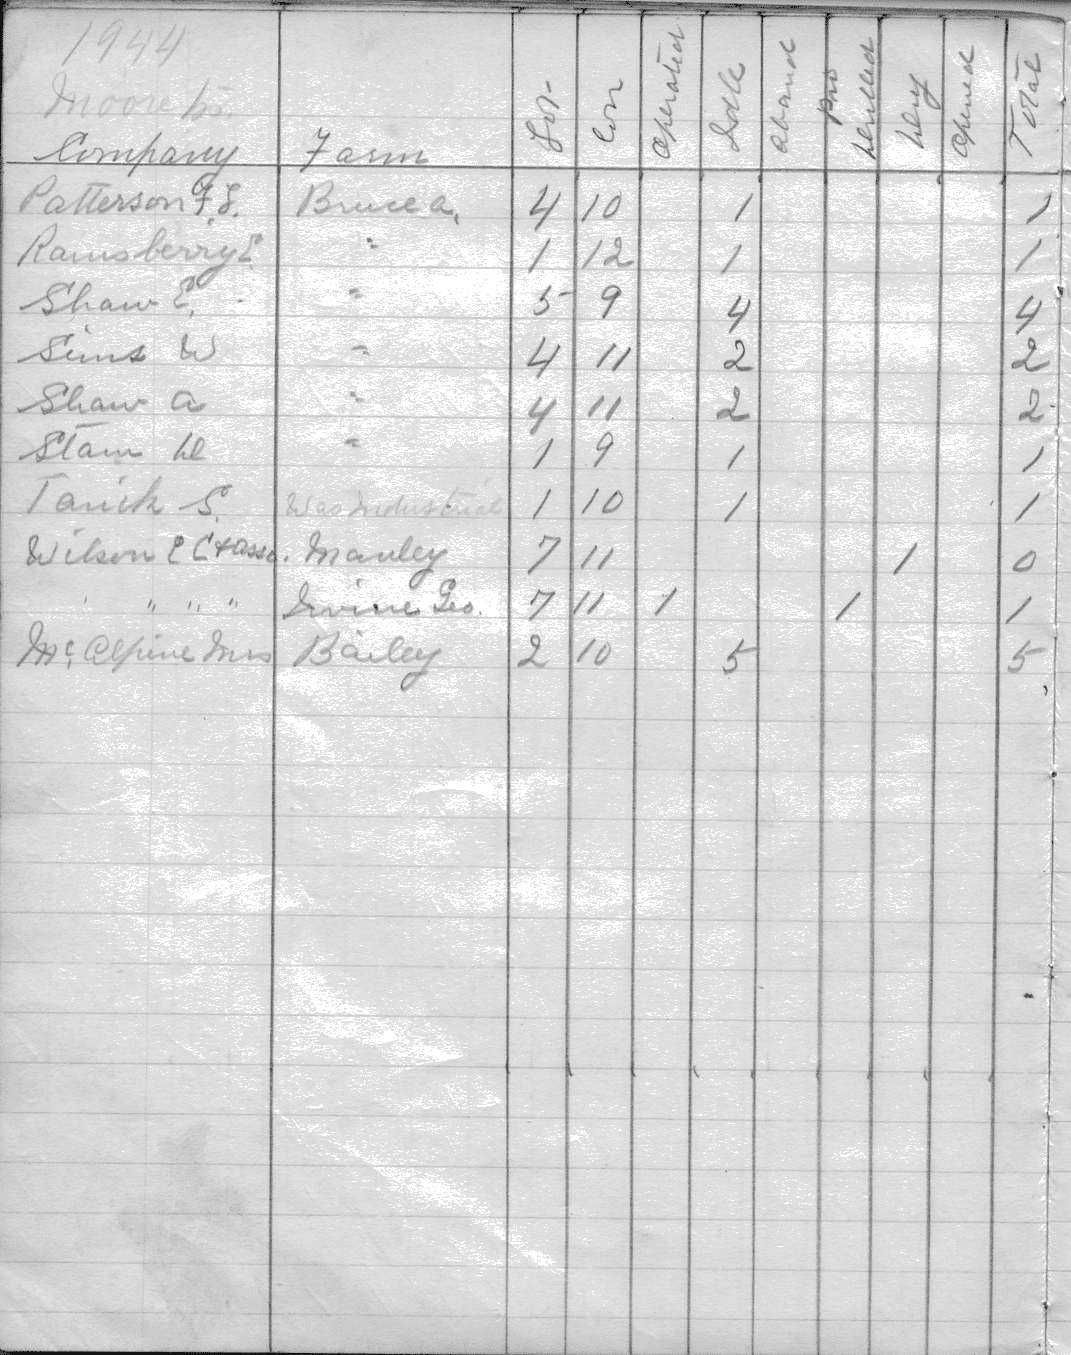 1944
Moore Co.
Company Farm Lot Con Operated Idle Aband Pro Drilled Dry Opened Total
Patterson F.S. Bruce A. 4 10 1 1
Ramsberry E. " 1 12 1 1
Shaw E. " 5 9 4 4
Sims W " 4 11 2 2
Shaw A " 4 11 2 2
Stam W " 1 9 1 1
Tarick S. Was Industrial 1 10 1 1
Wilson E C & Asso. Manley 7 11 1 0
" " " " Irvine Geo. 7 11 1 1 1
McAlpine Mrs Bailey 2 10 5 5